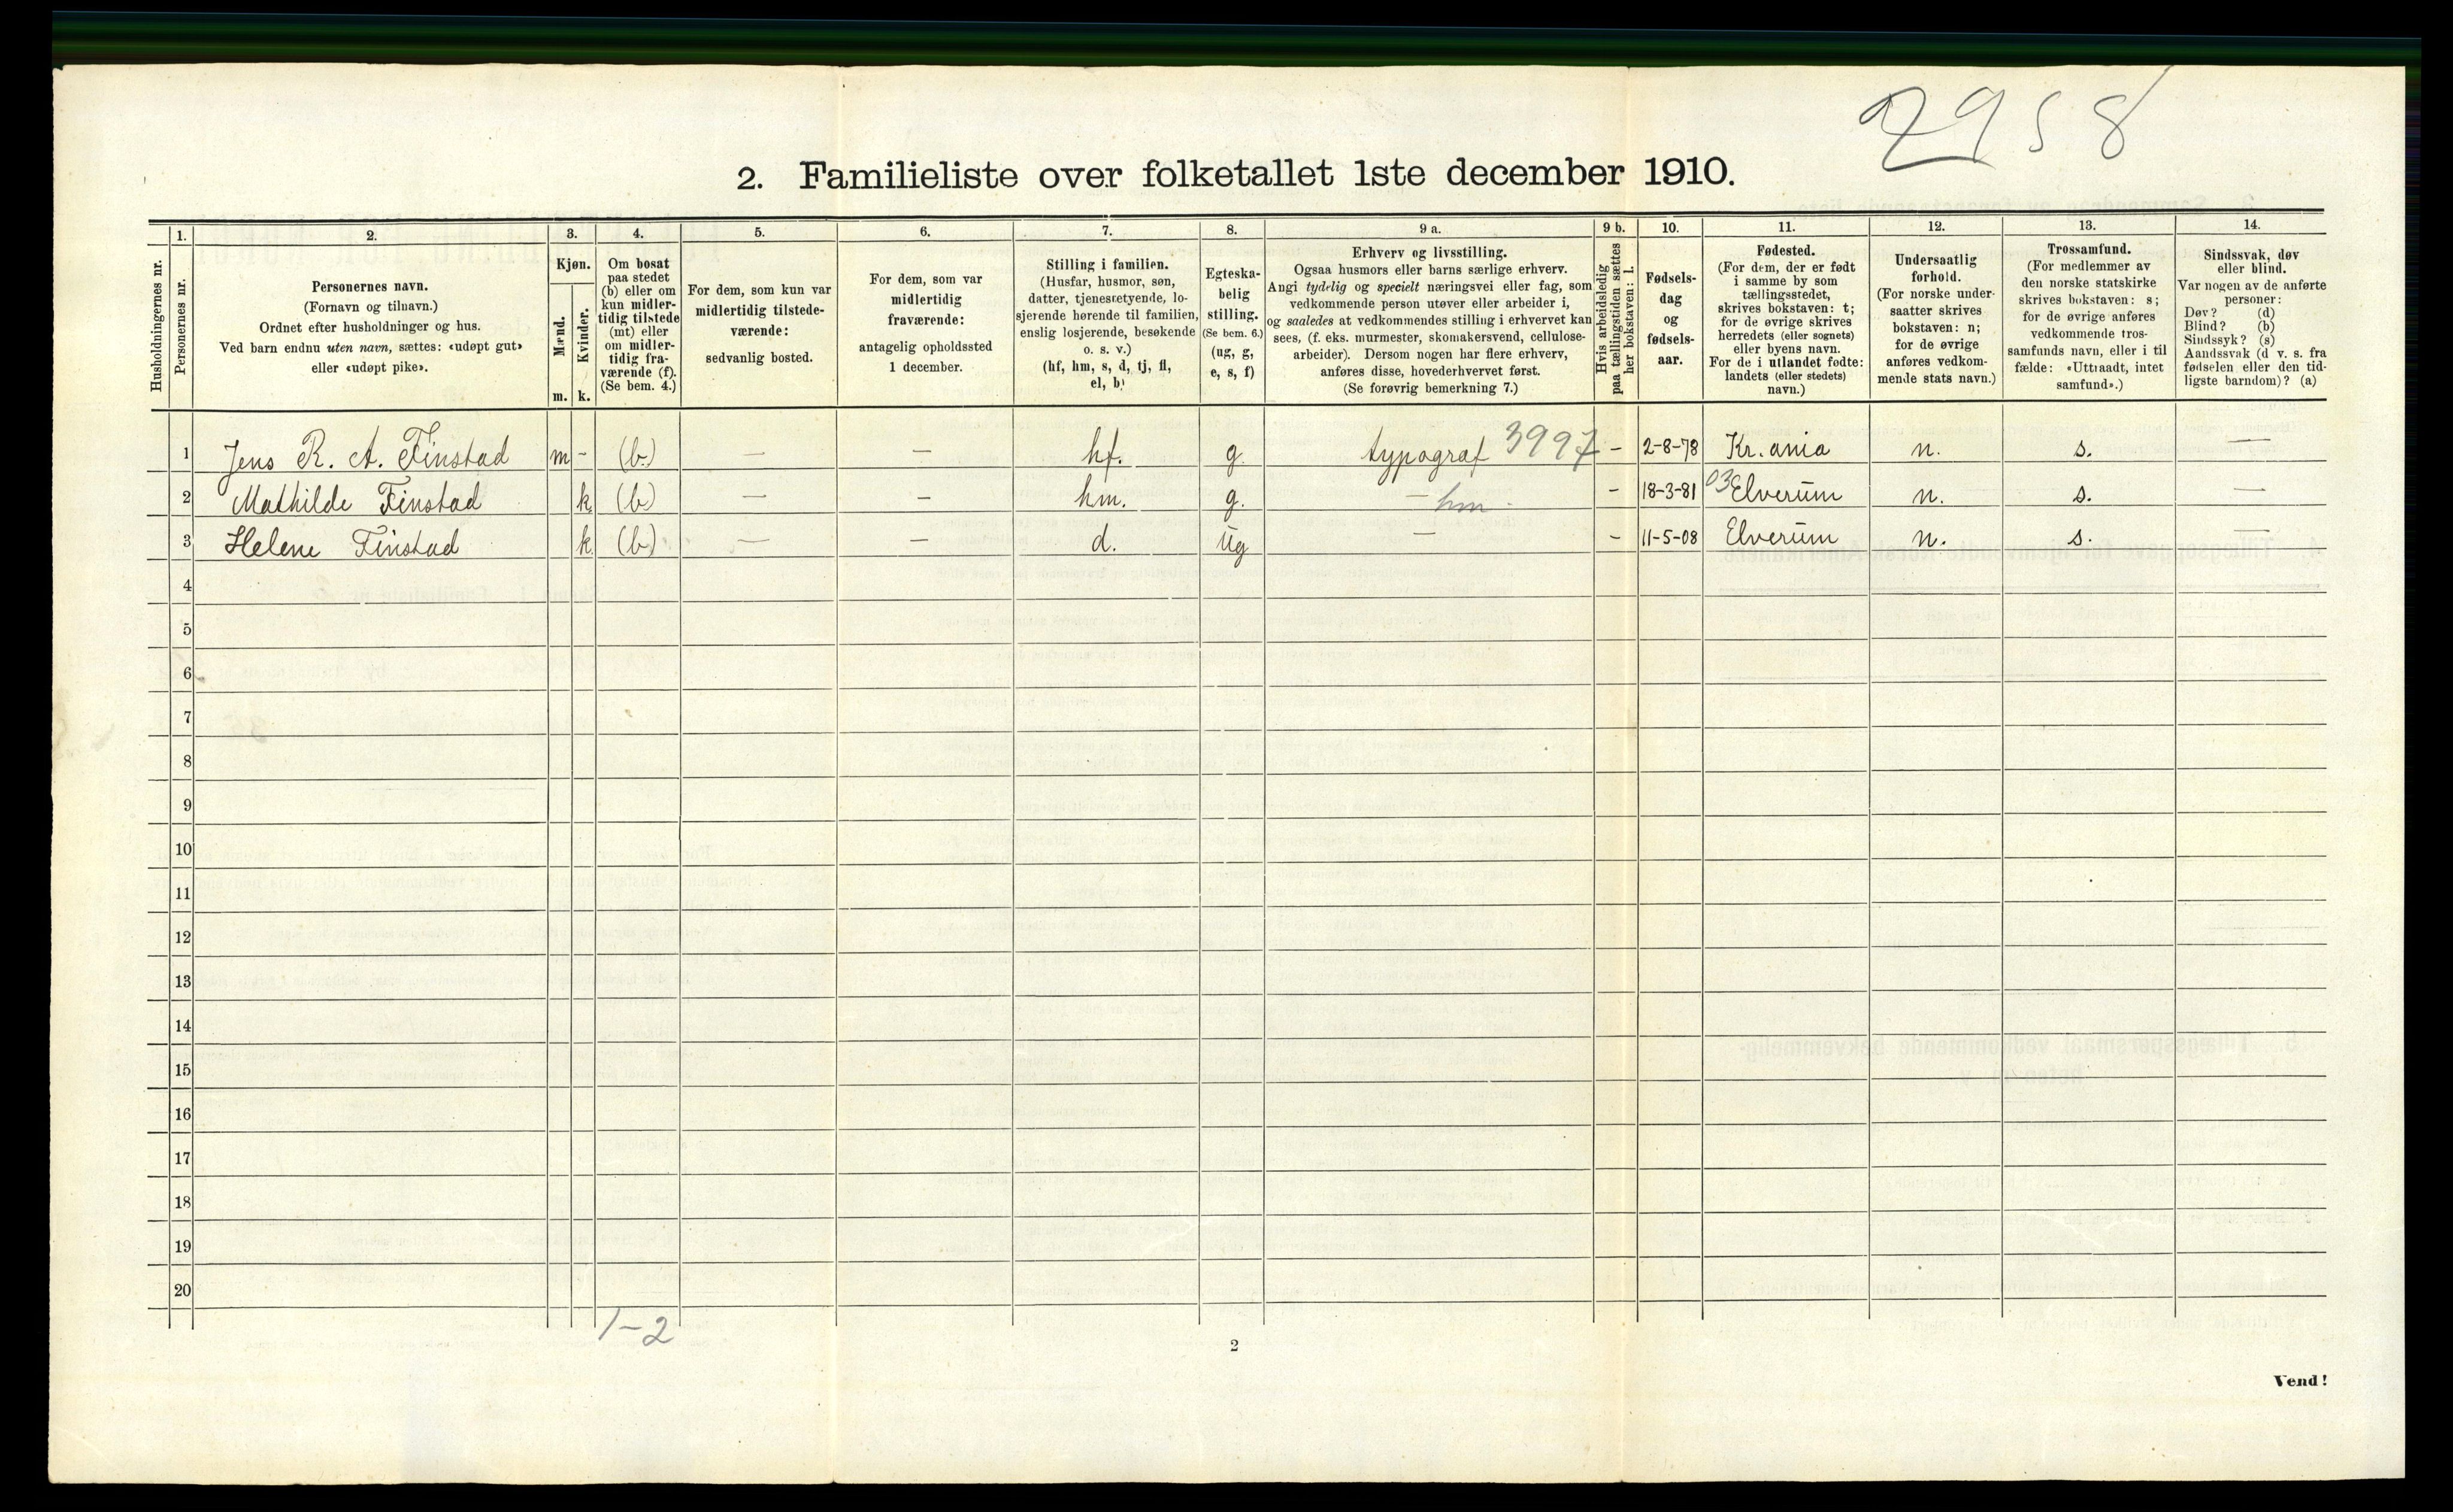 2958
2. Familieliste over folketallet 1ste december 1910.
Husholdningernes nr.
1. Personernes nr.
2. Personernes navn.
(Fornavn og tilnavn.)
Ordnet efter husholdninger og hus.
Ved barn endnu uten navn, sættes: «udøpt gut»
eller «udøpt pike».
3. Kjøn.
Mænd. m.
Kvinder. k.
4. Om bosat
paa stedet
(b) eller om
kun midler-
tidig tilstede
(mt) eller
om midler-
tidig fra-
værende (f).
(Se bem. 4.)
5. For dem, som kun var
midlertidig tilstede-
værende:
sedvanlig bosted.
6. For dem, som var
midlertidig
fraværende:
antagelig opholdssted
1 december.
7. Stilling i familien.
(Husfar, husmor, søn,
datter, tjenestetyende, lo-
sjerende hørende til familien,
enslig losjerende, besøkende
o. s. v.)
(hf, hm, s, d, tj, fl,
el, b)
8. Egteska-
belig
stilling.
(Se bem. 6.)
(ug, g,
e, s, f)
9 a. Erhverv og livsstilling.
Ogsaa husmors eller barns særlige erhverv.
Angi tydelig og specielt næringsvei eller fag, som
vedkommende person utøver eller arbeider i,
og saaledes at vedkommendes stilling i erhvervet kan
sees, (f. eks. murmester, skomakersvend, cellulose-
arbeider). Dersom nogen har flere erhverv,
anføres disse, hovederhvervet først.
(Se forøvrig bemerkning 7.)
9 b. Hvis arbeidsledig
paa tællingstiden sættes
her bokstaven: l.
10. Fødsels-
dag
og
fødsels-
aar.
11. Fødested.
(For dem, der er født
i samme by som
tællingsstedet,
skrives bokstaven: t;
for de øvrige skrives
herredets (eller sognets)
eller byens navn.
For de i utlandet fødte:
landets (eller stedets)
navn.)
12. Undersaatlig
forhold.
(For norske under-
saatter skrives
bokstaven: n;
for de øvrige
anføres vedkom-
mende stats navn.)
13. Trossamfund.
(For medlemmer av
den norske statskirke
skrives bokstaven: s;
for de øvrige anføres
vedkommende tros-
samfunds navn, eller i til
fælde: «Uttraadt, intet
samfund».)
14. Sindssvak, døv
eller blind.
Var nogen av de anførte
personer:
Døv? (d)
Blind? (b)
Sindssyk? (s)
Aandssvak (d v. s. fra
fødselen eller den tid-
ligste barndom)? (a)
1 Jens R. A. Finstad m - (b) — — hf. g. typograf 3997 - 2-8-78 Kr.ania n. s. —
2 Mathilde Finstad k (b) — — hm. g. - hm - - 18-3-81 03 Elverum n. s. —
3 Helene Finstad k. (b) — — d. ug — - 11-5-08 Elverum n. s. —
4
5
6
7
8
9
10
11
12
13
14
15
16
17
18
19
20
1-2
2
Vend!